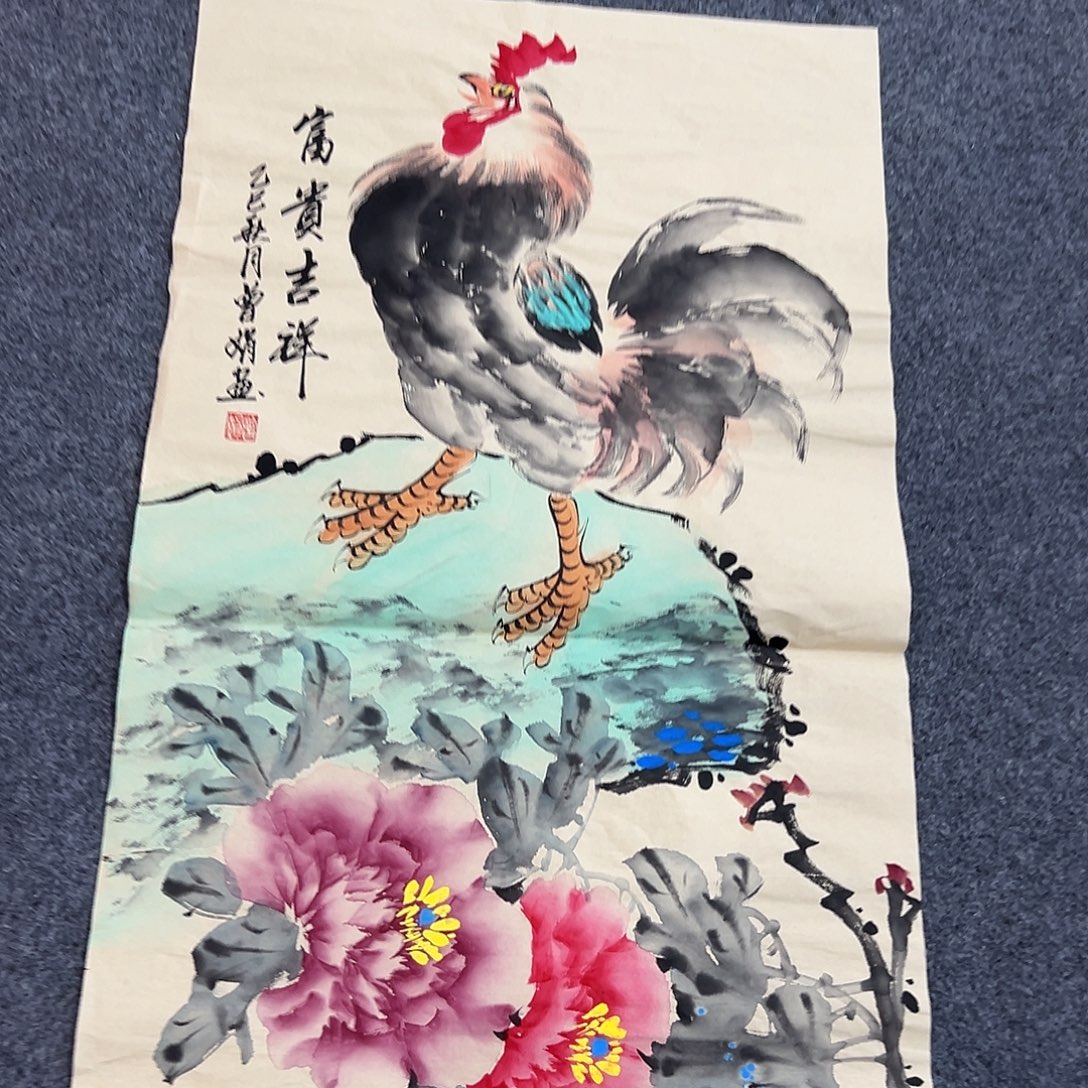 富貴吉祥
乙巳秋月曾娟画